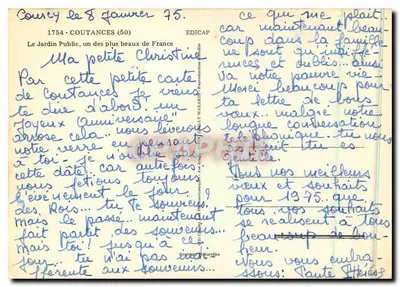 Courcy le 8 Janvier 75.
1754 - COUTANCES (50)
EDICAP
Le Jardin Public, un des plus beaux de France
Ma petite Christine
Par cette petite carte
de Coutances je viens
te dire d'abord un
"Joyeux Anniversaire"
arrosé cela.. nous lèverons
notre verre en pensant
à toi - je n'ai
cette date car autrefois
nous fêtions toujours
l'évènement le jour
des Rois... Tu te souviens
mais le passé.. maintenant
fait partie des souvenirs..
mais toi! jusqu'à ce
jour.. tu n'ai pas
afférente aux souvenirs...
ce qui me plaît
car maintenant beau
coup dans la famille
ne sont qu'indiffé
rences et oublis... ainsi
va notre pauvre vie
Merci beaucoup pour
ta lettre de bons
voeux.. malgré notre
longue conversation
téléphonique - tu nous
écris tu es
gentille
Tous nos meilleurs
voeux et souhaits
pour 1975. que
tous nos souhaits
se réalisent à tous
beaucoup de bon-
heur.
Nous vous embra-
ssons: Tante